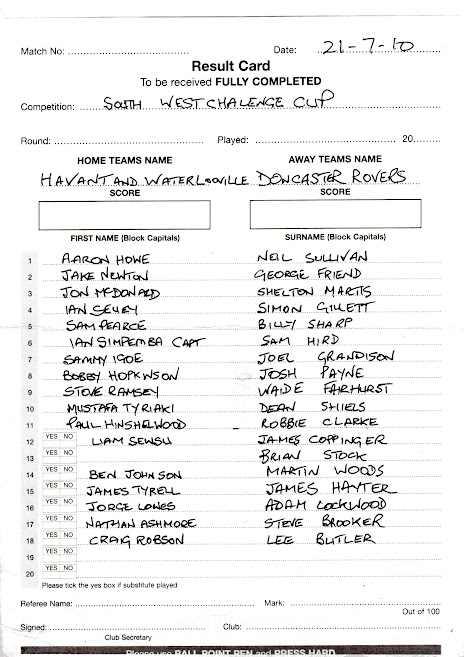 Match No: Date: 21-7-10
Result Card
To be received FULLY COMPLETED
Competition: SOUTH WEST CHALENGE CUP
Round: Played: 20
HOME TEAMS NAME AWAY TEAMS NAME
HAVANT AND WATERLOOVILLE DONCASTER ROVERS
SCORE SCORE
FIRST NAME (Block Capitals) SURNAME (Block Capitals)
1 AARON HOWE NEIL SULLIVAN
2 JAKE NEWTON GEORGE FRIEND
3 JON MCDONALD SHELTON MARTIS
4 IAN SELLEY SIMON GILLETT
5 SAM PEARCE BILLY SHARP
6 IAN SIMPEMBA CAPT SAM HIRD
7 SAMMY IGOE JOEL GRANDISON
8 BOBBY HOPKINSON JOSH PAYNE
9 STEVE RAMSEY WAIDE FAIRHURST
10 MUSTAFA TYRIAKI DEAN SHIELS
11 PAUL HINSHELWOOD ROBBIE CLARKE
12 YES NO LIAM JAMES COPPINGER
13 YES NO BRIAN STOCK
14 YES NO BEN JOHNSON MARTIN WOODS
15 YES NO JAMES TYRELL JAMES HAYTER
16 YES NO JORGE ADAM LOCKWOOD
17 YES NO NATHAN ASHMORE STEVE BROOKER
18 YES NO CRAIG ROBSON LEE BUTLER
19 YES NO
20 YES NO
Please tick the yes box if substitute played
Referee Name: Mark:
Out of 100
Signed: Club:
Club Secretary
Please use BALL POINT PEN and PRESS HARD